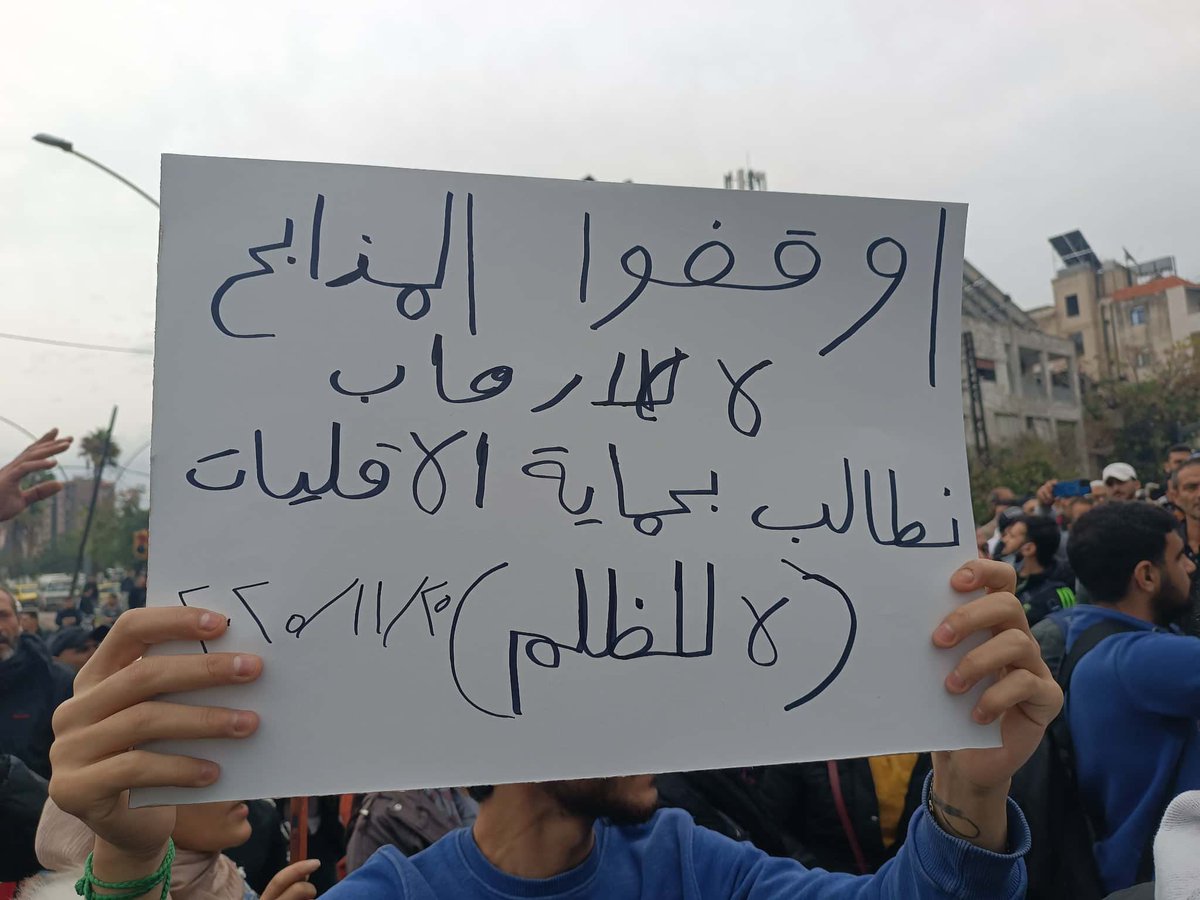 اوقفوا المذابح
لا للارهاب
نطالب بحماية الاقليات
(لا للظلم) ٢٠٢٥/١١/٢٥